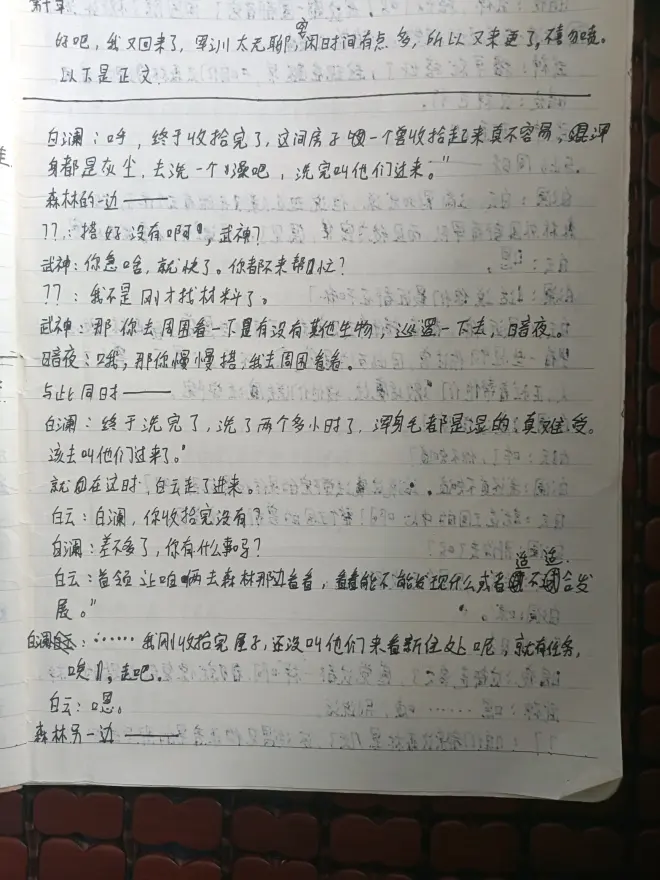 第十章
好吧，我又回来了，军训太无聊，空闲时间有点多，所以又来更了，不喜勿喷。
以下是正文
白澜：呼，终于收拾完了，这间房子一个兽收拾起来真不容易，浑
身都是灰尘，去洗一个澡吧，洗完叫他们过来。”
森林的一边——
??：搭好没有啊，武神？
武神：你急啥，就快了。你都不来帮忙？
??：我不是刚才找材料了。
武神：那你去周围看一下是有没有其他生物，巡逻一下去，暗夜。
暗夜：哦，那你慢慢搭，我去周围看看。
与此同时——
白澜：终于洗完了，洗了两个多小时了，浑身毛都是湿的，真难受。
该去叫他们过来了。”
就在这时，白云走了进来。
白云：白澜，你收拾完没有？
白澜：差不多了，你有什么事吗？
白云：首领让咱俩去森林那边看看，看能不能发现什么或者适不适合发
展。”
白澜：……我刚收拾完屋子，还没叫他们来看新住处呢，就有任务，
唉，走吧。
白云：嗯。
森林另一边——